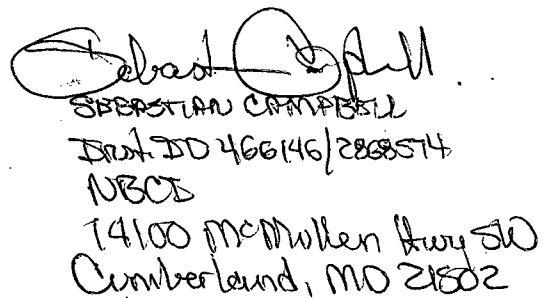 Sebast Cpbell
SEBASTIAN CAMPBELL
Inst. ID 466146/2868574
NBCI
14100 McMullen Hwy SW
Cumberland, MD 21502